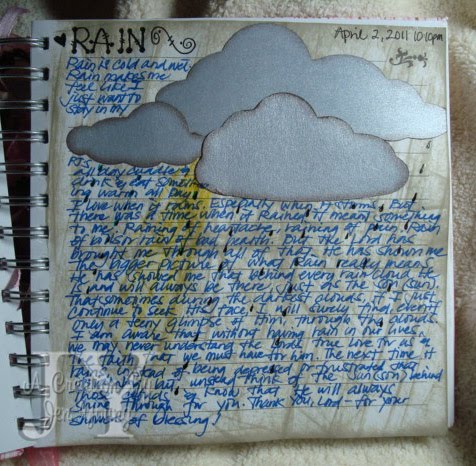 RAIN
April 2, 2011 10:10pm
Rain is cold and wet.
Rain makes me
feel like I
just want to
stay in my
PJS,
all day cuddle &
drink & eat someth-
ing warm all day.
I love when it rains. Especially when it storms. But
there was a time when it Rained it meant something
to me. Raining of heartache, raining of pain, Rain
of loss or rain of bad health. But the Lord has
brought me through all of that. He has shown me
the bigger picture of what Rain really means.
It has shown me that behind every rain cloud He
is and will always be there, just as the sun (son).
That sometimes during the darkest clouds, if I just
continue to seek His face, I will surely find even if
only a teeny glimpse of Him through the clouds.
I am aware that without having rain in our lives,
we may never understand the Lords true love for us &
the faith that we must have for him. The next time it
rains, instead of being depressed or frustrated that
think of the sun (son) behind
those clouds & know that He will always
shine through for you. Thank you, Lord - for your
showers of blessing!
A Creation by
Jen